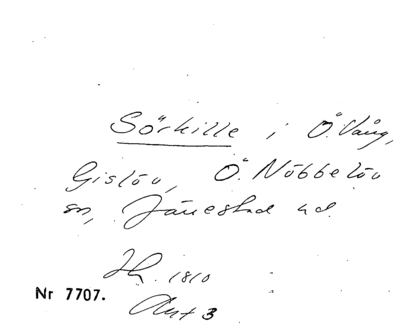 Sörkille i Ö. Vång,
Gislöv, Ö. Nöbbelöv
sn, Järrestad hd.
Hk. 1810
Nr 7707.
Akt 3